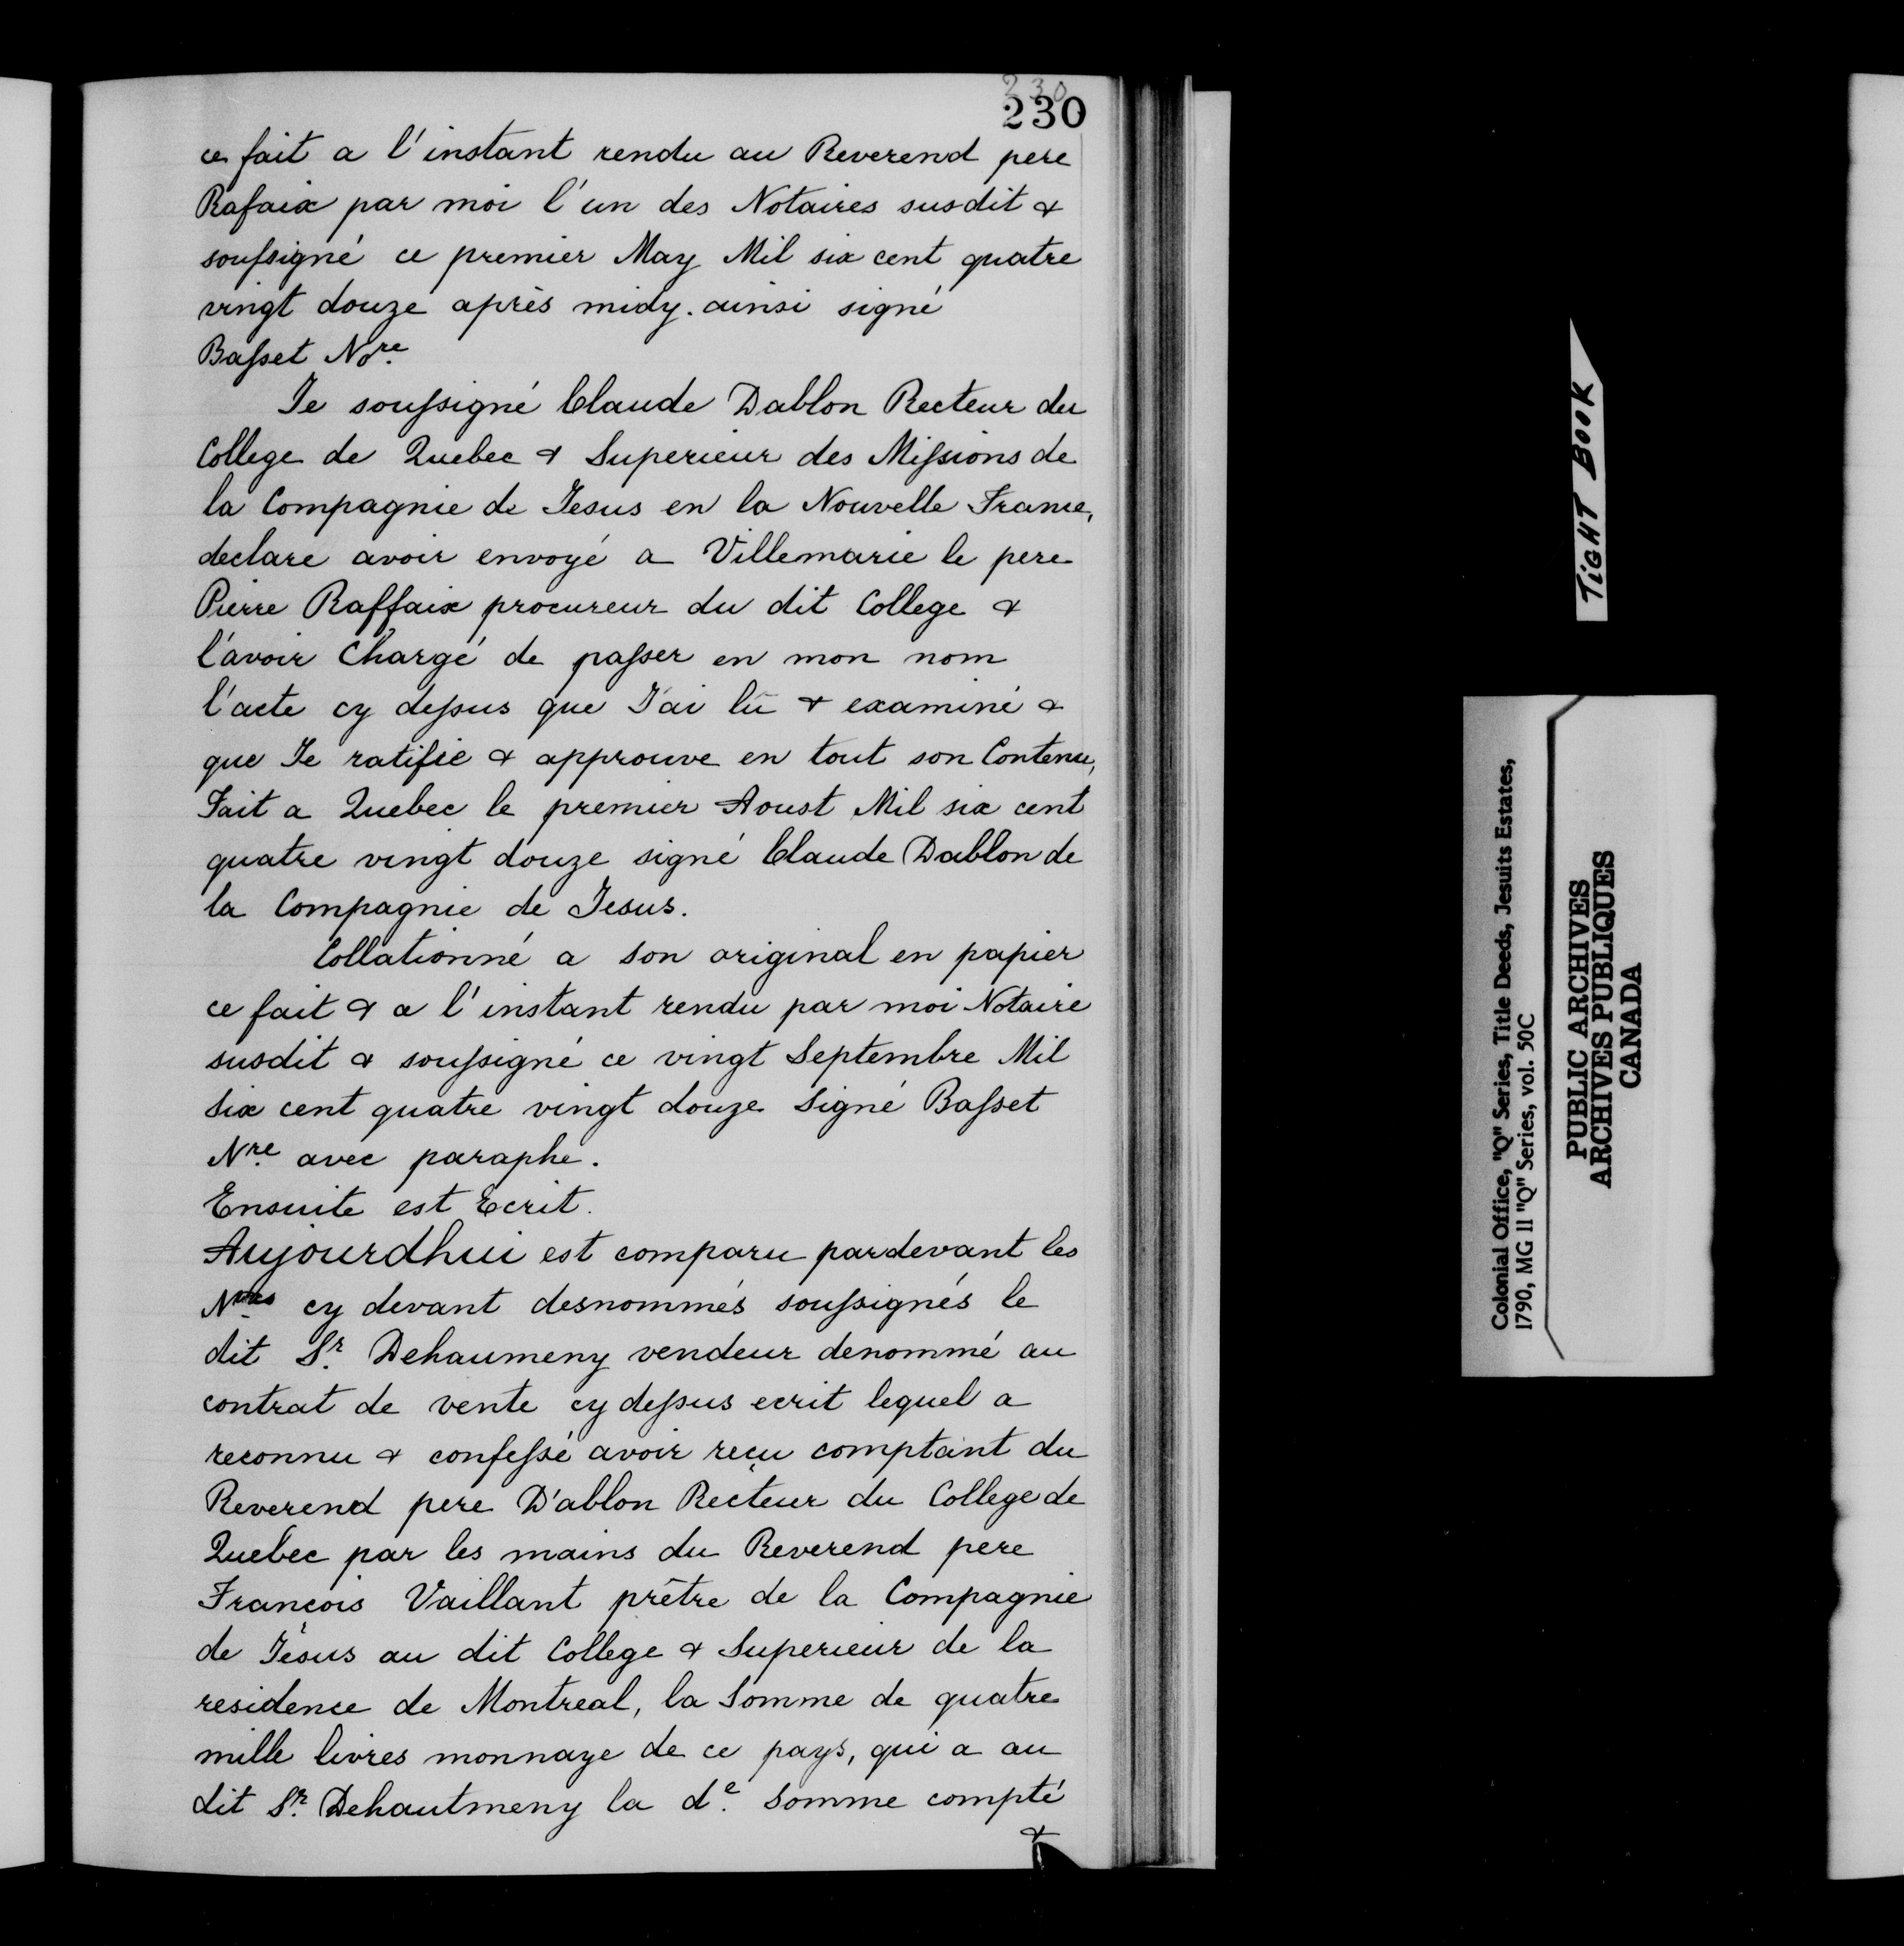 230
230
ce fait a l'instant rendu au Reverend pere
Rafaix par moi l'un des Notaires susdit &
soussigné ce premier May Mil six cent quatre
vingt douze après midy. ainsi signé
Basset Nore
Je soussigné Claude Dablon Recteur du
College de Quebec & Superieur des Missions de
la Compagnie de Jesus en la Nouvelle France,
declare avoir envoyé a Villemarie le pere
Pierre Raffaix procureur du dit College &
l'avoir Chargé de passer en mon nom
l'acte cy dessus que J'ai lû & examiné &
que Je ratifie & approuve en tout son Contenu,
Fait a Quebec le premier Aoust Mil six cent
quatre vingt douze signé Claude Dablon de
la Compagnie de Jesus.
Collationné a son original en papier
ce fait & a l'instant rendu par moi Notaire
susdit & soussigné ce vingt Septembre Mil
six cent quatre vingt douze Signé Basset
Nre avec paraphe.
Ensuite est Ecrit.
Aujourdhui est comparu pardevant les
Nres cy devant desnommés soussignés le
dit Sr. Dehaumeny vendeur denommé au
contrat de vente cy dessus ecrit lequel a
reconnu & confessé avoir reçu comptant du
Reverend pere D'ablon Recteur du College de
Quebec par les mains du Reverend pere
François Vaillant prêtre de la Compagnie
de Jésus au dit College & Superieur de la
residence de Montreal, la Somme de quatre
mille livres monnaye de ce pays, qui a au
dit Sr. Dehautmeny la de. Somme compté
&
TIGHT BOOK
Colonial Office, "Q" Series, Title Deeds, Jesuits Estates,
1790, MG 11 "Q" Series, vol. 50C
PUBLIC ARCHIVES
ARCHIVES PUBLIQUES
CANADA